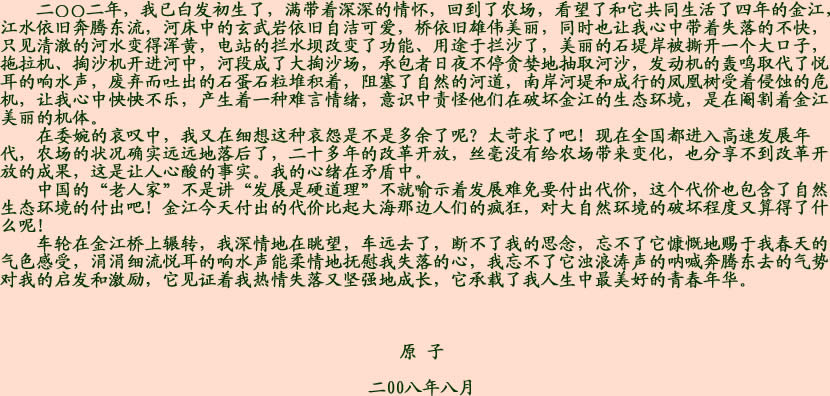 二〇〇二年，我已白发初生了，满带着深深的情怀，回到了农场，看望了和它共同生活了四年的金江，
江水依旧奔腾东流，河床中的玄武岩依旧自洁可爱，桥依旧雄伟美丽，同时也让我心中带着失落的不快，
只见清澈的河水变得浑黄，电站的拦水坝改变了功能、用途于拦沙了，美丽的石堤岸被撕开一个大口子，
拖拉机、掏沙机开进河中，河段成了大掏沙场，承包者日夜不停贪婪地抽取河沙，发动机的轰鸣取代了悦
耳的响水声，废弃而吐出的石蛋石粒堆积着，阻塞了自然的河道，南岸河堤和成行的凤凰树受着侵蚀的危
机，让我心中怏怏不乐，产生着一种难言情绪，意识中责怪他们在破坏金江的生态环境，是在阉割着金江
美丽的机体。
在委婉的哀叹中，我又在细想这种哀怨是不是多余了呢？太苛求了吧！现在全国都进入高速发展年
代，农场的状况确实远远地落后了，二十多年的改革开放，丝毫没有给农场带来变化，也分享不到改革开
放的成果，这是让人心酸的事实。我的心绪在矛盾中。
中国的“老人家”不是讲“发展是硬道理”不就喻示着发展难免要付出代价，这个代价也包含了自然
生态环境的付出吧！金江今天付出的代价比起大海那边人们的疯狂，对大自然环境的破坏程度又算得了什
么呢！
车轮在金江桥上辗转，我深情地在眺望，车远去了，断不了我的思念，忘不了它慷慨地赐于我春天的
气色感受，涓涓细流悦耳的响水声能柔情地抚慰我失落的心，我忘不了它浊浪涛声的呐喊奔腾东去的气势
对我的启发和激励，它见证着我热情失落又坚强地成长，它承载了我人生中最美好的青春年华。
原 子
二00八年八月